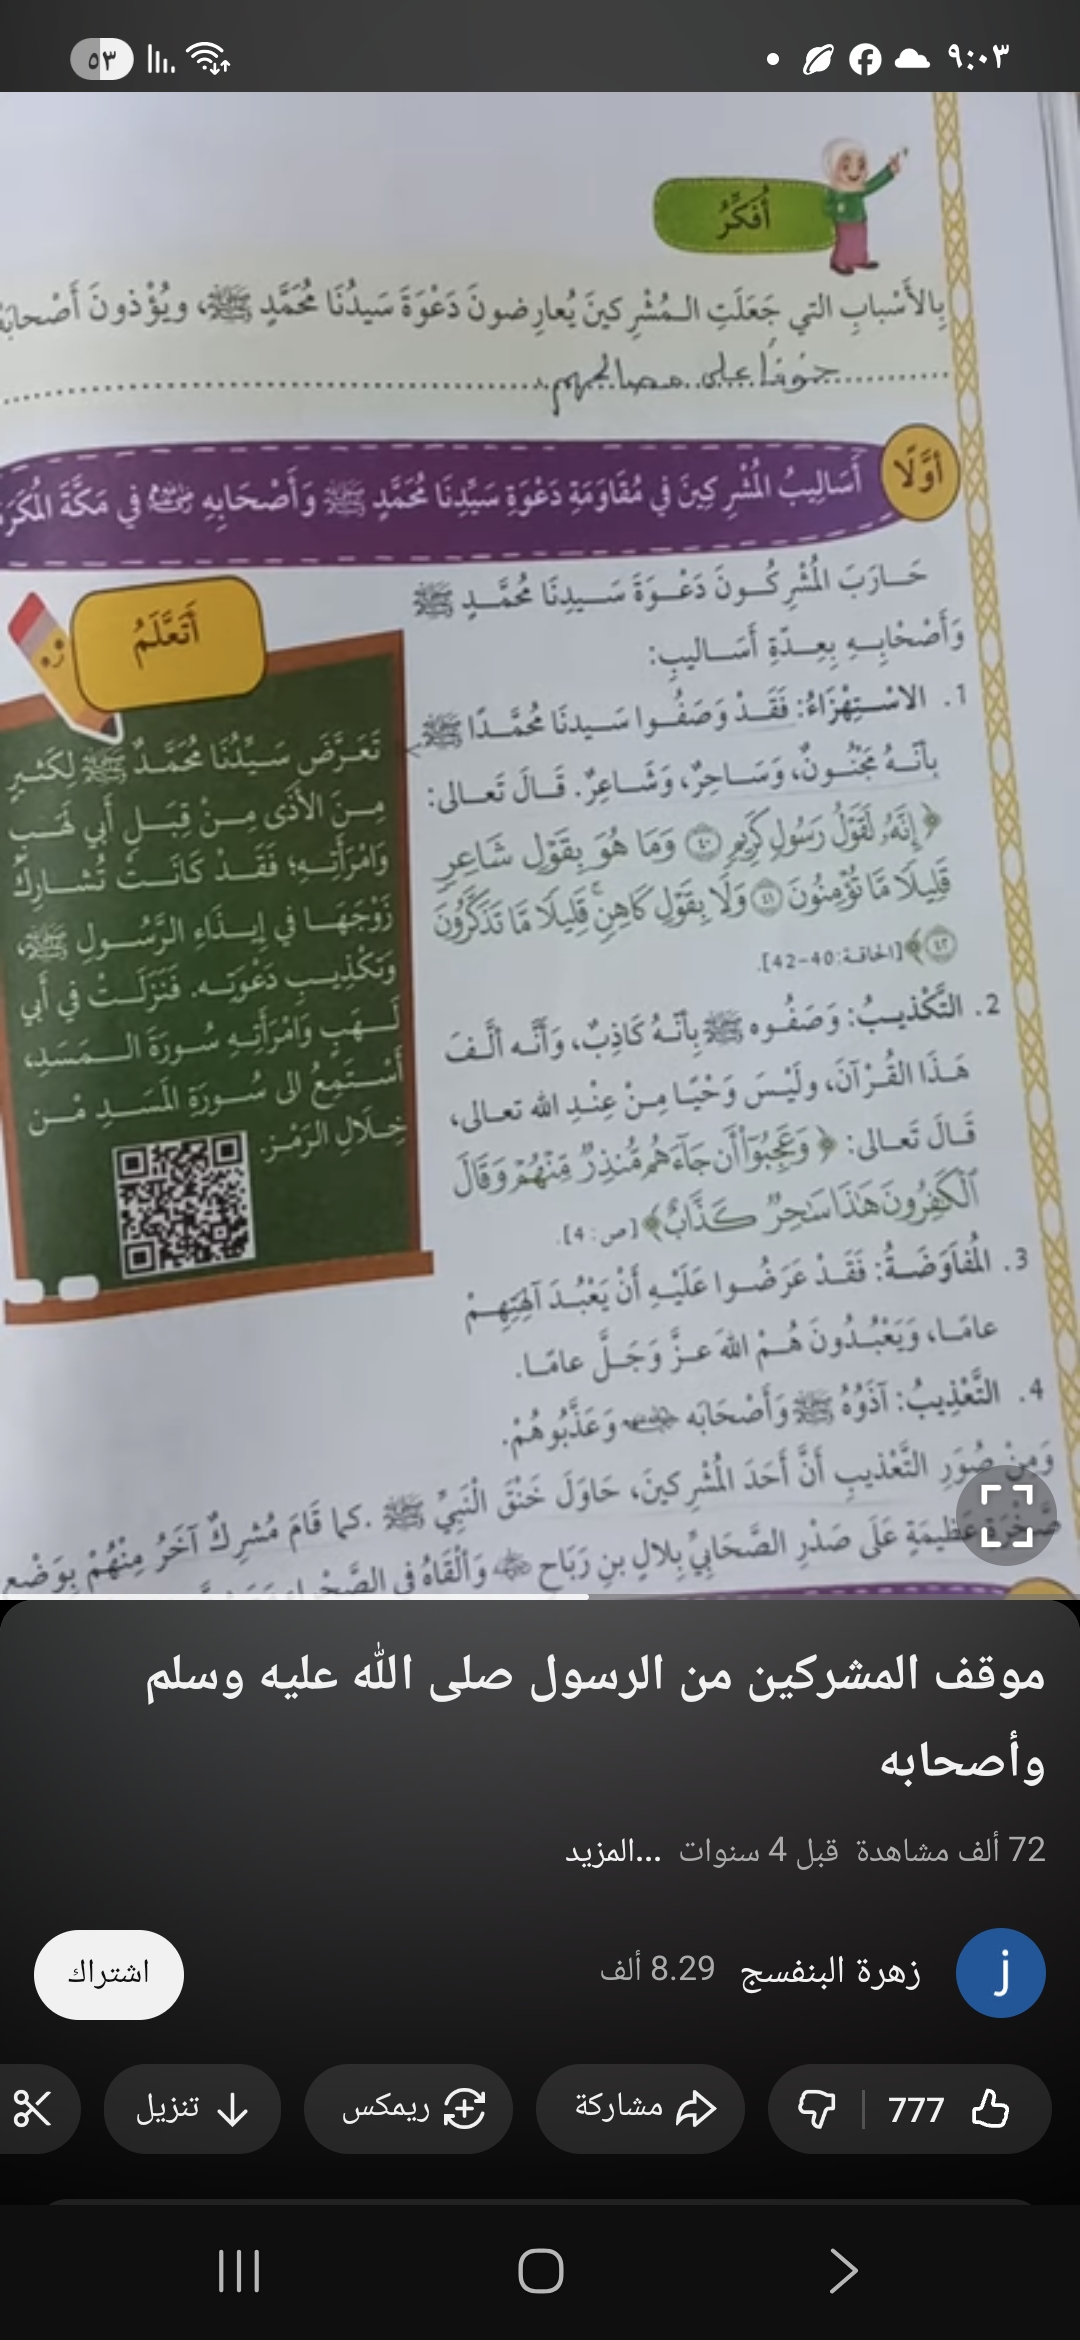 ٩:٠٣
٥٣
أُفَكِّرُ
بِالأَسْبابِ التي جَعَلَتِ الـمُشْرِكينَ يُعارِضونَ دَعْوَةَ سَيدُنَا مُحَمَّدٍ ﷺ، ويُؤْذونَ أَصْحابَهُ
خوفًا على مصالحهم.
أَوَّلًا
أَسَالِيبُ المُشْرِكينَ في مُقَاوَمَةِ دَعْوَةِ سَيِّدِنَا مُحَمَّدٍ ﷺ وَأَصْحَابِهِ في مَكَّةَ
حَارَبَ المُشْرِكُونَ دَعْوَةَ سَيدِنَا مُحَمَّدٍ ﷺ
وَأَصْحَابِهِ بِعِدّةِ أَسَاليبِ:
1. الاسْتِهْزَاءُ: فَقَدْ وَصَفُوا سَيدنَا مُحَمَّدًا ﷺ
بأنّهُ مَجْنُونٌ، وَسَاحِرٌ، وَشَاعِرٌ. قَالَ تَعالى:
﴿إِنَّهُۥ لَقَوْلُ رَسُولٍ كَرِيمٍ ۝٤٠ وَمَا هُوَ بِقَوْلِ شَاعِرٍ
قَلِيلًا مَّا تُؤْمِنُونَ ۝٤١ وَلَا بِقَوْلِ كَاهِنٍ ۚ قَلِيلًا مَّا تَذَكَّرُونَ
۝٤٢﴾ [الحاقة:40-42].
2. التَّكْذيبُ: وَصَفُوه ﷺ بِأنّهُ كَاذِبٌ، وَأَنَّه ألَّفَ
هَذَا القُرْآنَ، ولَيْسَ وَحْيًا مِنْ عِنْدِ الله تعالى،
قَالَ تَعالى: ﴿وَعَجِبُوٓا۟ أَن جَآءَهُم مُّنذِرٌ مِّنْهُمْ وَقَالَ
ٱلْكَٰفِرُونَ هَٰذَا سَٰحِرٌ كَذَّابٌ﴾ [ص: 4].
3. المُفَاوَضَةُ: فَقَدْ عَرَضُوا عَلَيْهِ أَنْ يَعْبُدَ آلهَتِهِمْ
عامًا، وَيَعْبُدُونَ هُمْ اللهَ عزَّ وَجَلَّ عامًا.
4. التَّعْذِيبُ: آذَوْهُ ﷺ وَأَصْحَابَه وَعَذَّبُوهُمْ.
وَمِنْ صُوَرِ التَّعْذيبِ أَنَّ أَحَدَ المُشْرِكينَ، حَاوَلَ خَنْقَ النَّبيِّ ﷺ. كما قَامَ مُشرِكٌ آخَرُ مِنْهُمْ بِوَضْعِ
صَخْرَةٍ عَظيمَةٍ عَلَى صَدْرِ الصَّحَابيِّ بِلالِ بنِ رَبَاحٍ وَأَلْقَاهُ في
أَتَعَلَّمُ
تَعَرَّضَ سَيِّدُنَا مُحَمَّدٌ ﷺ لِكَثيرٍ
مِنَ الأَذَى مِنْ قِبَلِ أَبي لَهَبٍ
وَامْرَأَتِهِ؛ فَقَدْ كَانَتْ تُشارِكُ
زَوْجَهَا في إيذَاءِ الرَّسُولِ ﷺ،
وَتكْذيبِ دَعْوَتِه. فَنَزَلَتْ في أَبي
لَهَبٍ وَامْرَأَتِهِ سُورَةَ الـمَسَدِ،
أَسْتَمِعُ الى سُورَةِ المَسَدِ مْن
خِلَالِ الرَمْزِ.
موقف المشركين من الرسول صلى الله عليه وسلم
وأصحابه
72 ألف مشاهدة قبل 4 سنوات ...المزيد
j
زهرة البنفسج 8.29 ألف
اشتراك
777
مشاركة
ريمكس
تنزيل